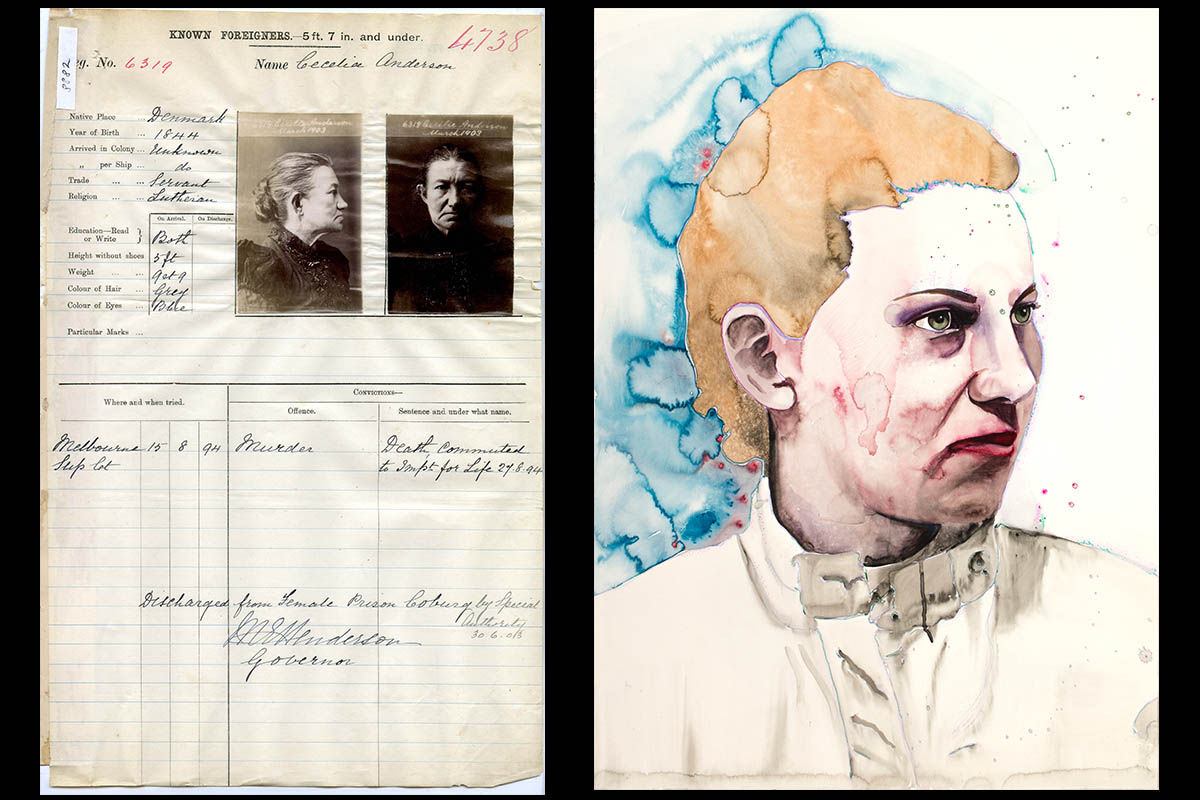 KNOWN FOREIGNERS.—5 ft. 7 in. and under.
4738
8282
g. No. 6319 Name Cecelia Anderson
Native Place ... Denmark
Year of Birth ... 1844
Arrived in Colony ... Unknown
„ per Ship ... do
Trade ... ... Servant
Religion ... Lutheran
On Arrival. On Discharge.
Education—Read or Write } Both
Height without shoes 5 ft
Weight ... ... 9st 9
Colour of Hair ... Grey
Colour of Eyes ... Blue
Particular Marks ...
6319 Cecelia Anderson
March 1903
6319 Cecelia Anderson
March 1903
Where and when tried.
CONVICTIONS—
Offence.
Sentence and under what name.
Melbourne 15 8 94 Murder Death, commuted
Sup Ct to Impt for Life 27.8.94
Discharged from Female Prison Coburg by Special
Authority
30.6.03
Henderson
Governor